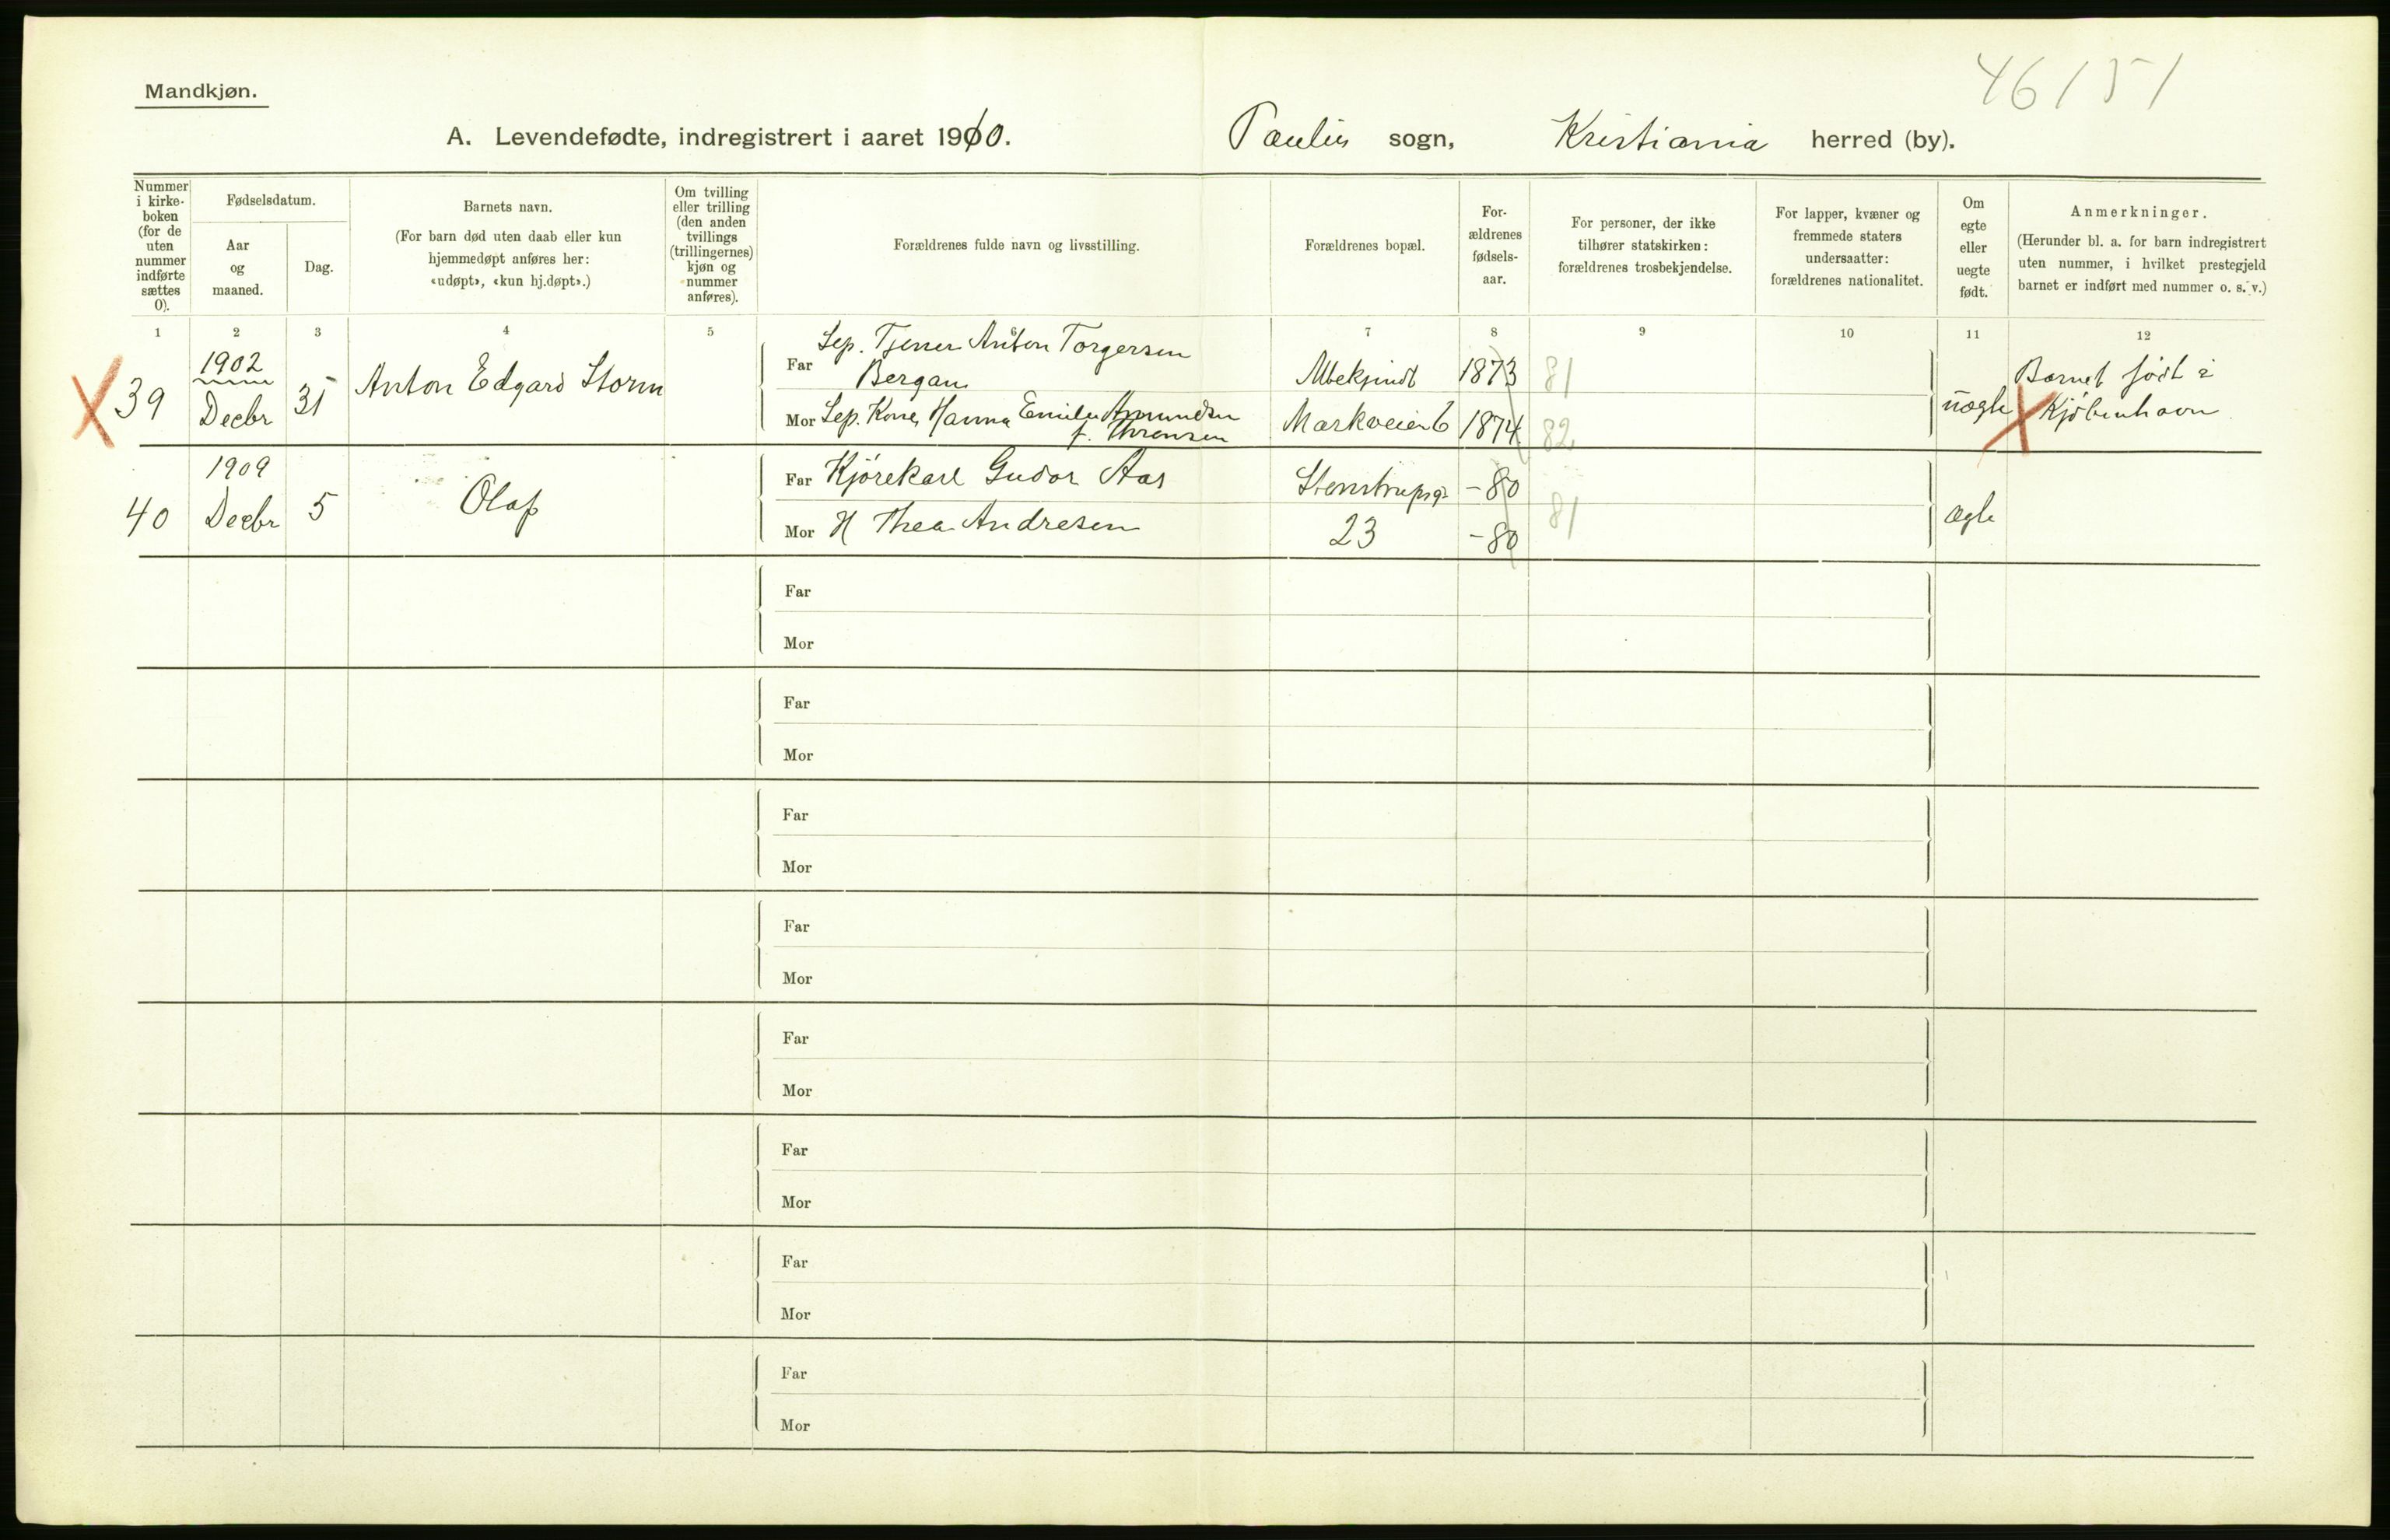 46151
Mandkjøn.
A. Levendefødte, indregistrert i aaret 1910. Paulus sogn, Kristiania herred (by).
Nummer i kirke- boken (for de uten nummer indførte sættes 0).
Fødselsdatum.
Aar og maaned.
Dag.
Barnets navn.
(For barn død uten daab eller kun
hjemmedøpt anføres her:
«udøpt», «kun hj.døpt».)
Om tvilling
eller trilling
(den anden
tvillings
(trillingernes)
kjøn og
nummer
anføres).
Forældrenes fulde navn og livsstilling.
Forældrenes bopæl.
For-
ældrenes
fødsels-
aar.
For personer, der ikke
tilhører statskirken:
forældrenes trosbekjendelse.
For lapper, kvæner og
fremmede staters
undersaatter:
forældrenes nationalitet.
Om
egte
eller
uegte
født.
Anmerkninger.
(Herunder bl. a. for barn indregistrert
uten nummer, i hvilket prestegjeld
barnet er indført med nummer o. s. v.)
1 2 3 4 5 6 7 8 9 10 11 12
39 1902 Decbr 31 Anton Edgard Storm
Far Sep. Tjener Anton Torgersen
Bergan 1873 81
Mor Sep. Kone Hanna Emilie Amundsen
f. Thoresen Markveien 6 1874 82
uægte Barnet født i
Kjøbenhavn
40 1909 Decbr 5 Olaf
Far Kjørekarl Gudor Aas Stenstrupsg. - 80
Mor H Thea Andresen 23 - 80 81
ægte
Far
Mor
Far
Mor
Far
Mor
Far
Mor
Far
Mor
Far
Mor
Far
Mor
Far
Mor